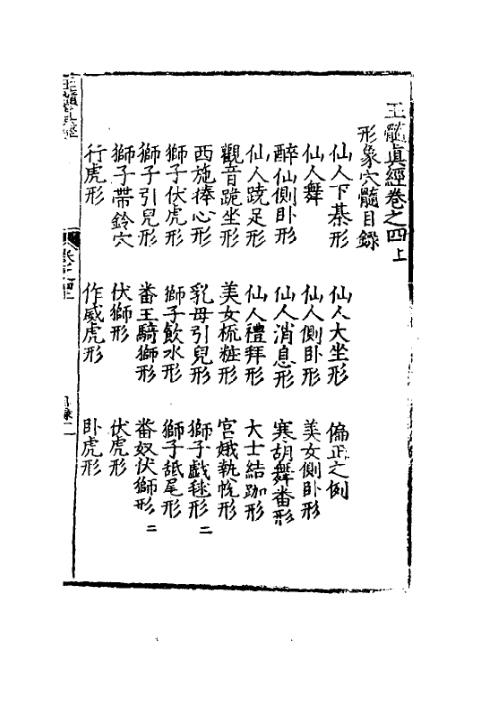 玉髓真經卷之四上
形象穴髓目錄
仙人下棊形 仙人大坐形 偏正之例
仙人舞 仙人側卧形 美女側卧形
醉仙側卧形 仙人消息形 寒胡舞畨形
仙人蹺足形 仙人禮拜形 大士結跏形
觀音跪坐形 美女梳粧形 宫娥執帨形
西施捧心形 乳母引兒形 獅子戲毬形二
獅子伏虎形 獅子飲水形 獅子舐尾形
獅子引兒形 畨王騎獅形 畨奴伏獅形二
獅子帶鈴穴 伏獅形 伏虎形
行虎形 作威虎形 卧虎形